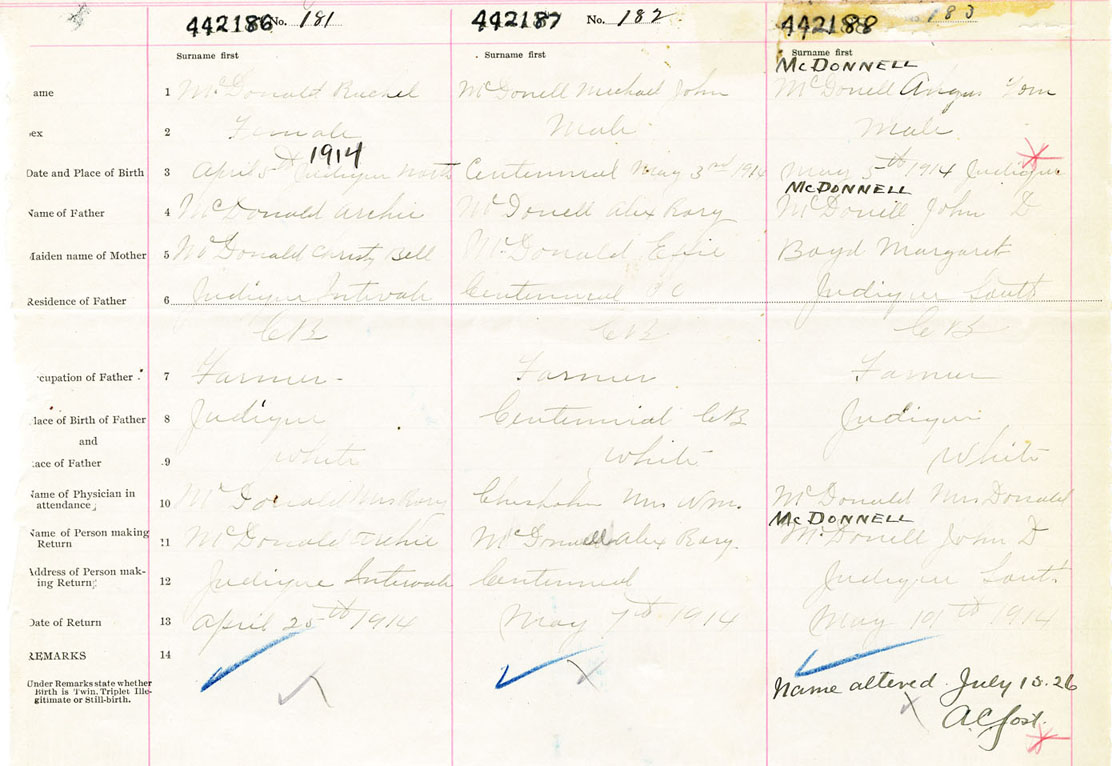 442186 No. 181 442187 No. 182 442188 183
Surname first Surname first Surname first
McDONNELL
ame 1 McDonald Rachel McDonell Michael John McDonell Angus Tom
ex 2 Female Male Male
1914
Date and Place of Birth 3 April 5th Judique North Centennial May 3rd 1914 May 5th 1914 Judique
McDONNELL
Name of Father 4 McDonald Archie McDonell Alex Rory McDonell John D
Maiden name of Mother 5 McDonald Christy Bell McDonald Effie Boyd Margaret
Residence of Father 6 Judique Intervale Centennial Judique South
CB CB CB
cupation of Father 7 Farmer Farmer Farmer
lace of Birth of Father 8 Judique Centennial CB Judique
and
ace of Father 9 White White White
Name of Physician in
attendance; 10 McDonald Mrs Rory Chisholm Mrs Wm. McDonald Mrs Donald
McDONNELL
Name of Person making
Return 11 McDonald Archie McDonell Alex Rory McDonell John D
Address of Person mak-
ing Return; 12 Judique Intervale Centennial Judique South
Date of Return 13 April 25th 1914 May 7th 1914 May 19th 1914
REMARKS 14
Under Remarks state whether
Birth is Twin, Triplet Ille-
gitimate or Still-birth.
Name altered. July 15.26
A C Jost.